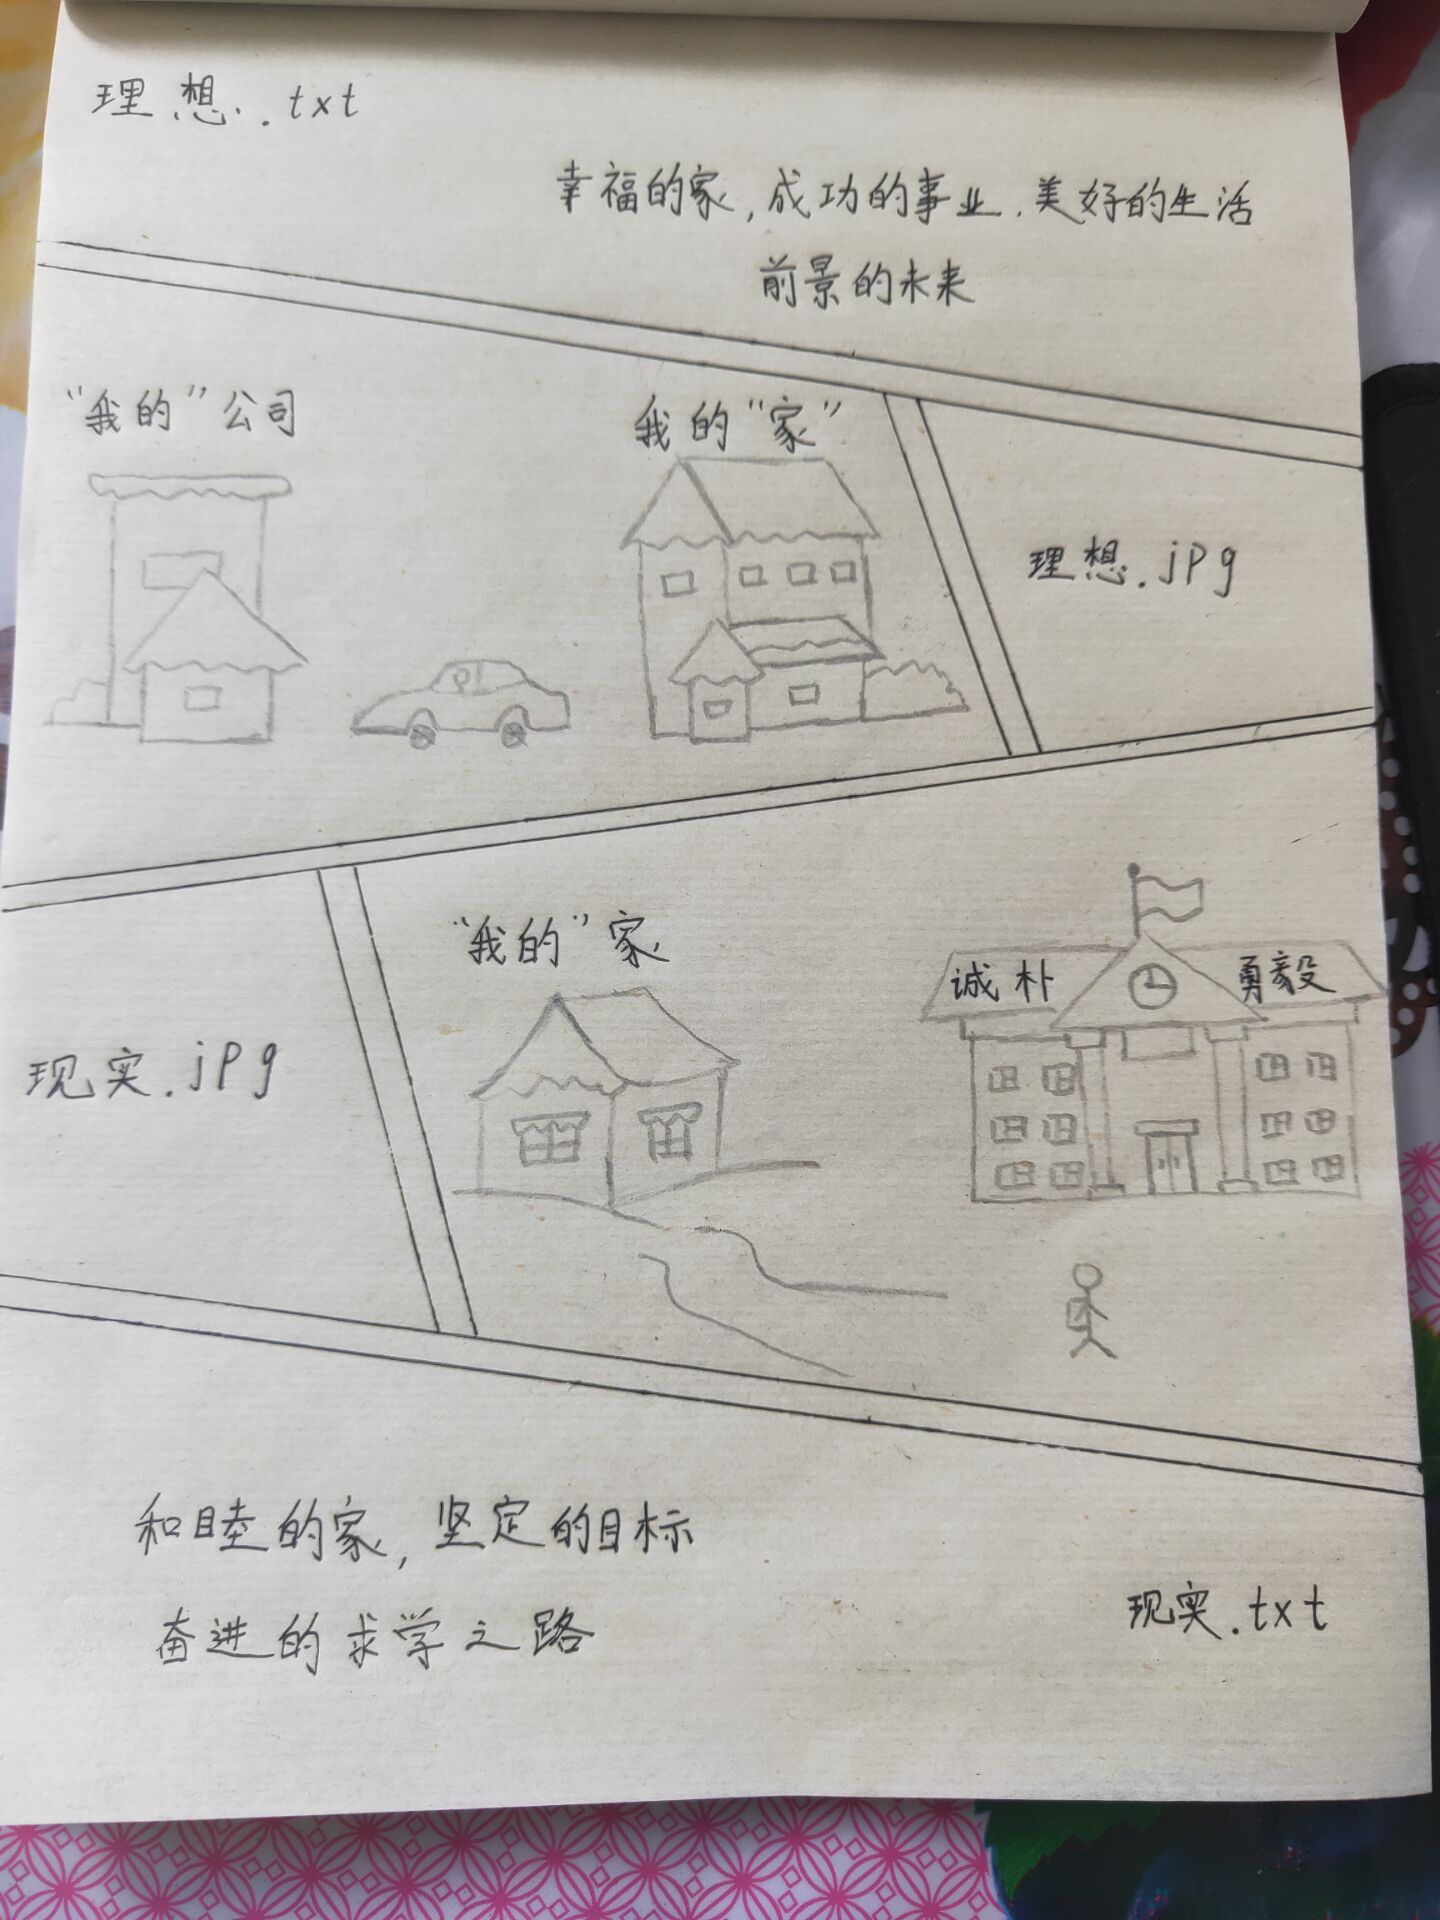 理想.txt
幸福的家,成功的事业.美好的生活
前景的未来
“我的”公司
我的“家”
理想.jpg
现实.jpg
“我的”家
诚朴
勇毅
和睦的家,坚定的目标
奋进的求学之路
现实.txt